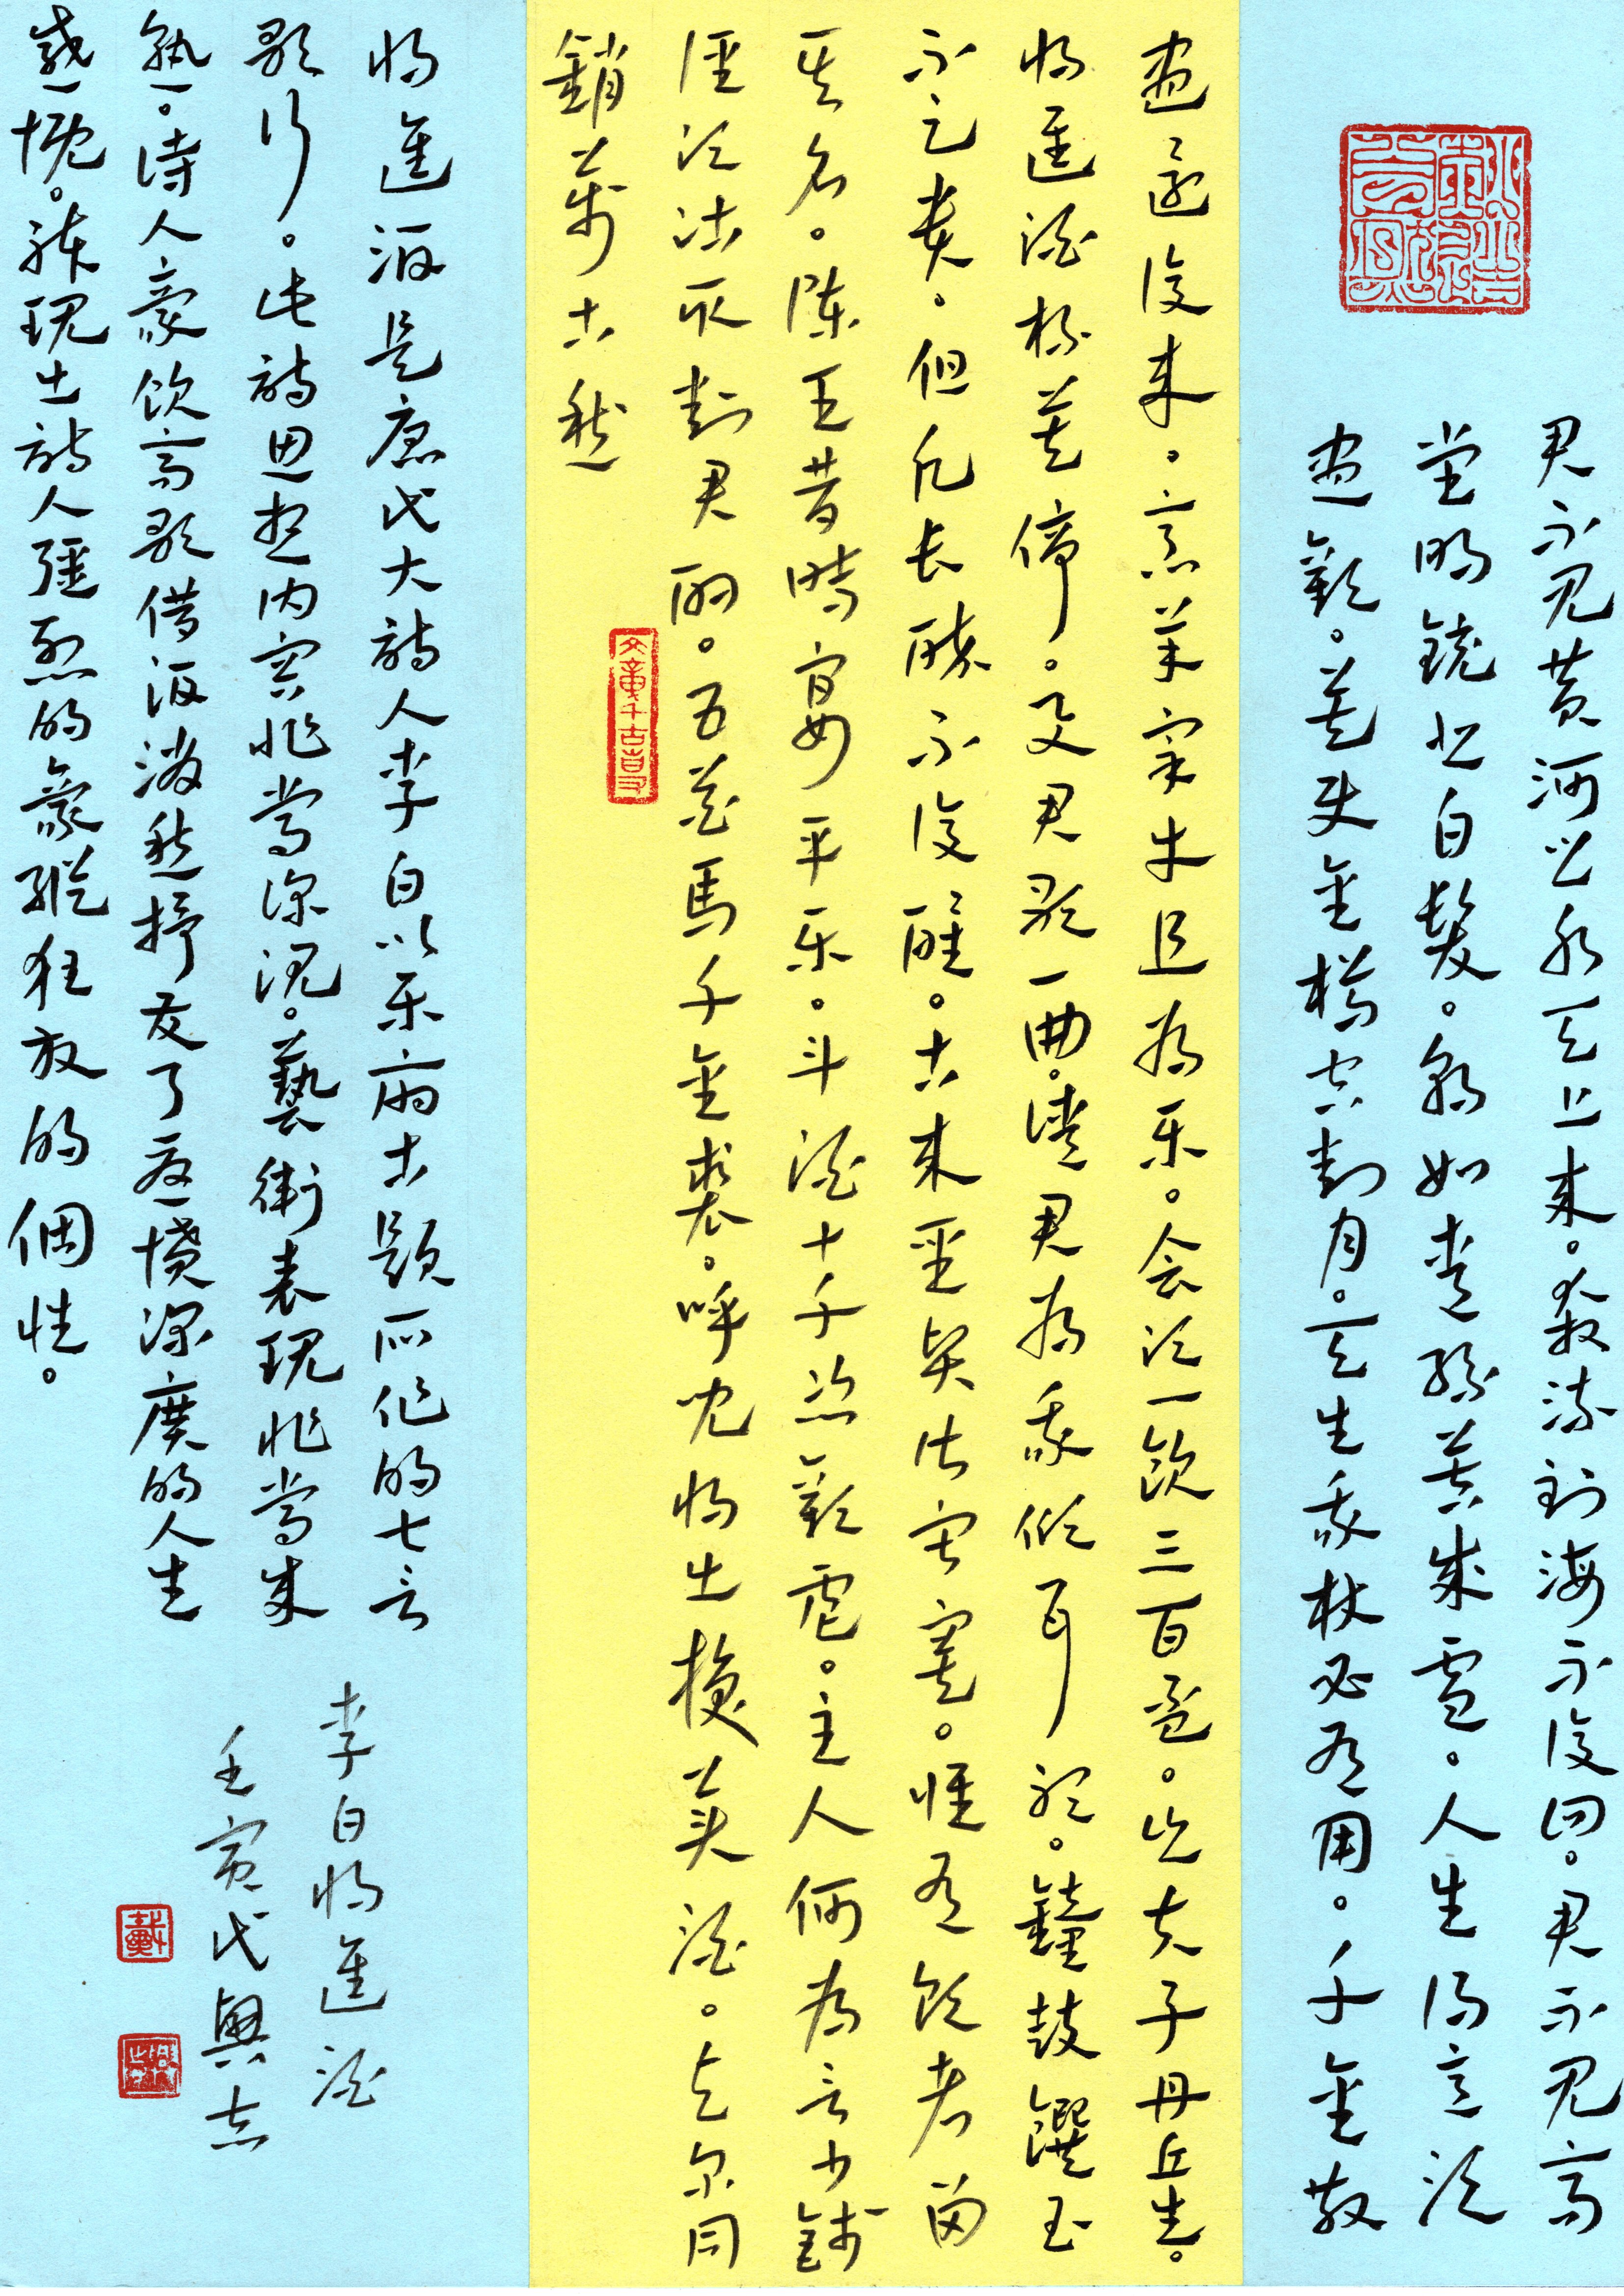 君不见黄河之水天上来。奔流到海不復回。君不见高
堂明镜悲白髮。朝如青丝暮成雪。人生得意须
尽歡。莫使金樽空對月。天生我材必有用。千金散
尽还復来。烹羊宰牛且为乐。会须一饮三百杯。岑夫子丹丘生。
将進酒杯莫停。与君歌一曲。請君为我倾耳听。鐘鼓饌玉
不足贵。但願长醉不復醒。古来聖贤皆寂寞。惟有饮者留
其名。陈王昔时宴平乐。斗酒十千恣歡谑。主人何为言少錢
径须沽取對君酌。五花馬千金裘。呼儿将出换美酒。与尔同
銷万古愁
将進酒是唐代大诗人李白以乐府古题所作的七言
歌行。此诗思想内容非常深沉。藝術表现非常成
熟。诗人豪饮高歌借酒消愁抒发了忧憤深廣的人生
感慨。体现出诗人强烈的豪縱狂放的個性。
李白将進酒
壬寅戈興志
文章千古事